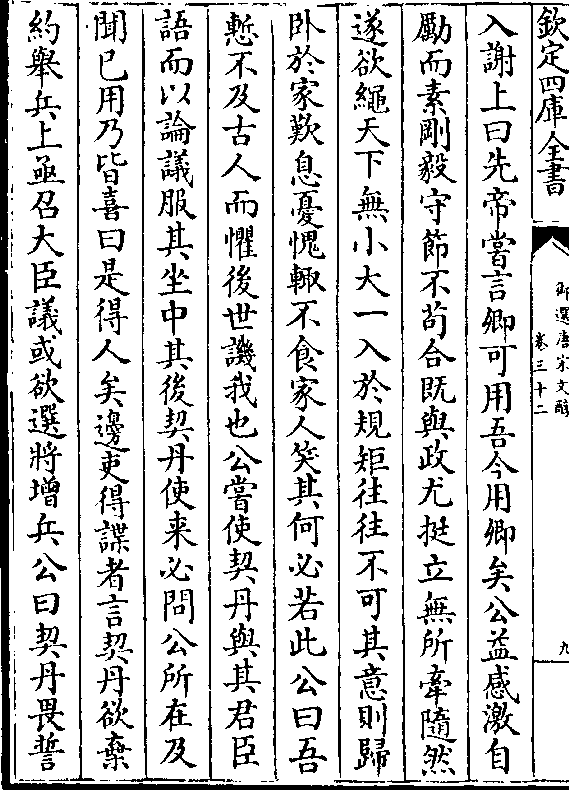 欽定四庫全書
御選唐宋文醇
卷三十二
九
入謝上曰先帝嘗言卿可用吾今用卿矣公益感激自
勵而素剛毅守節不茍合既與政尤挺立無所牽隨然
遂欲繩天下無小大一入於規矩往往不可其意則歸
卧於家歎息憂愧輙不食家人笑其何必若此公曰吾
慙不及古人而懼後世譏我也公嘗使契丹與其君臣
語而以論議服其坐中其後契丹使来必問公所在及
聞已用乃皆喜曰是得人矣邊吏得諜者言契丹欲棄
約舉兵上亟召大臣議或欲選將增兵公曰契丹畏誓